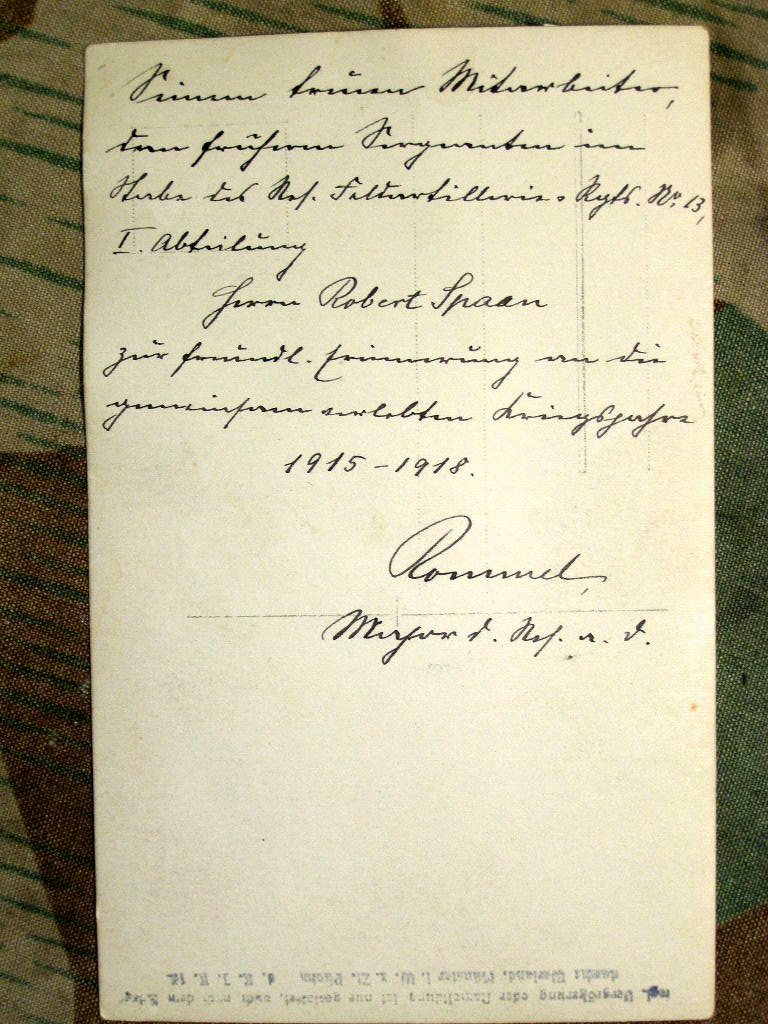 Seinem treuen Mitarbeiter,
dem früheren Sergeanten im
Stabe des Res. Feldartillerie-Rgts. No. 13,
I. Abteilung
Herrn Robert Spaan
zur freundl. Erinnerung an die
gemeinsam verlebten Kriegsjahre
1915-1918.
Rommel,
Major d. Res. a. D.
Vergrößerung oder Nachbildung ist nur gestattet, auch nach dem
durch: Münster i. W. z. Zt.